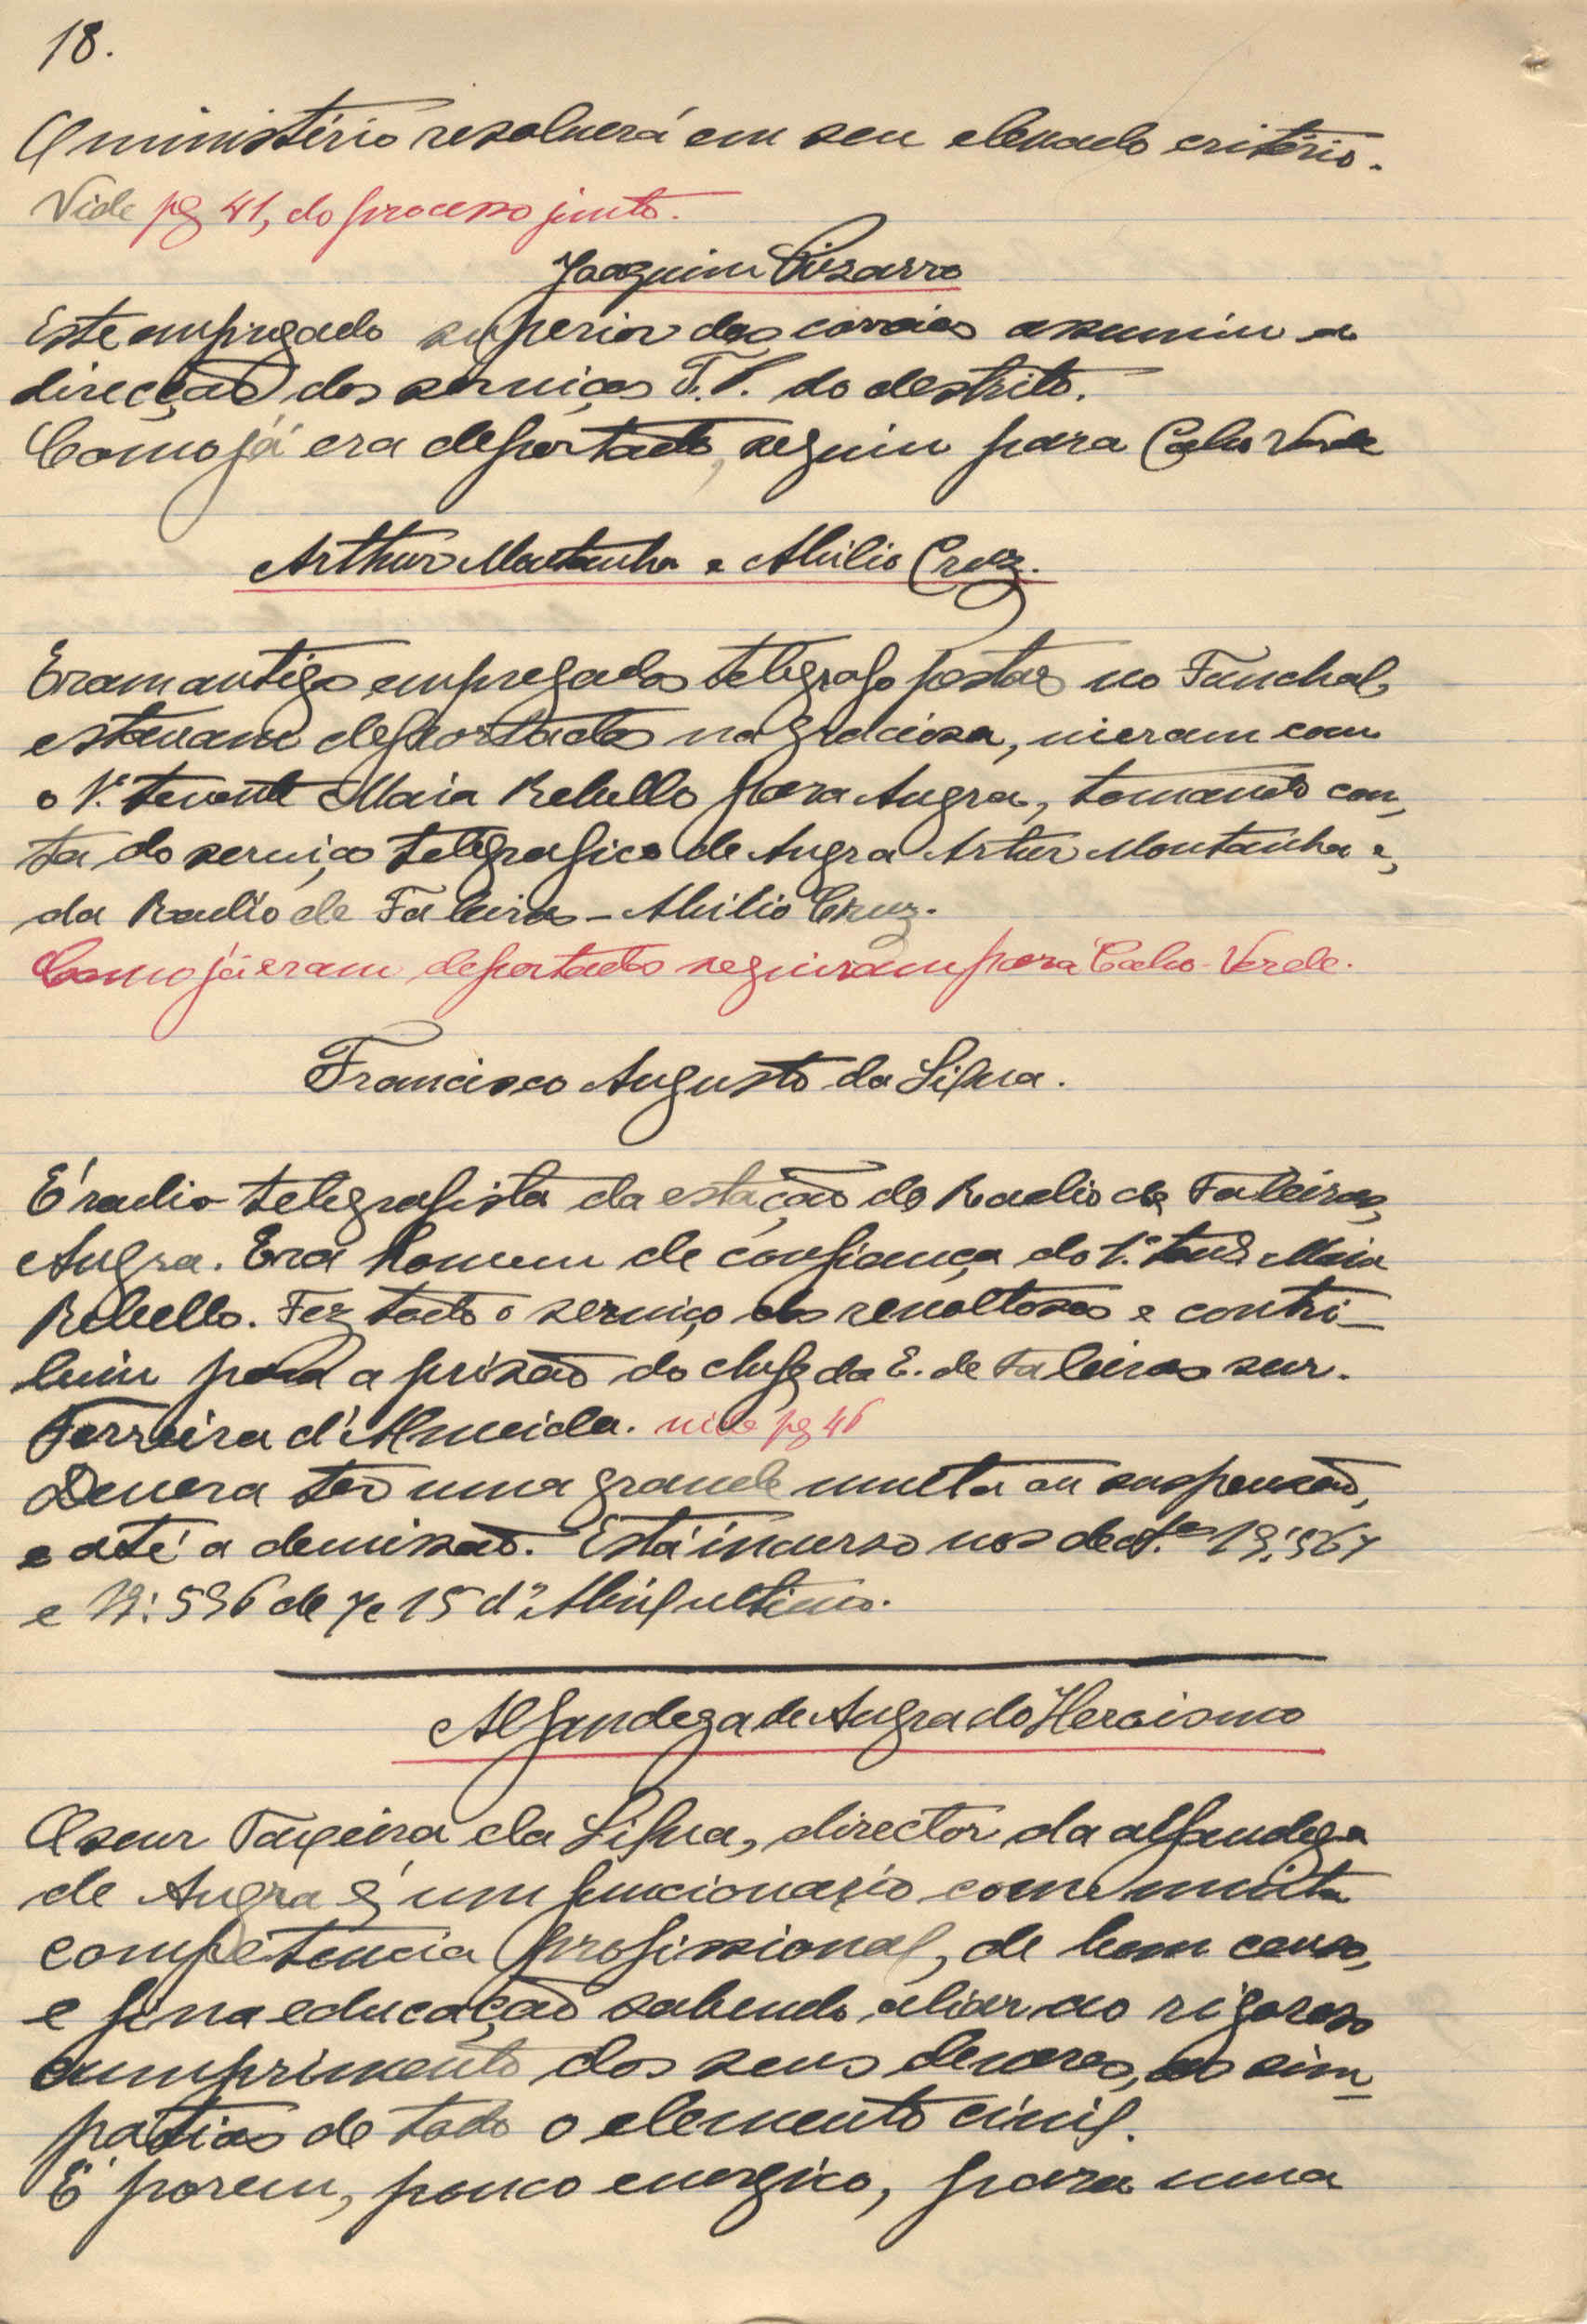 18.
O ministério resolverá em seu elevado critério.
Vide pg 41, do processo junto.
Joaquim Pizarro
Este empregado superior dos correios assumiu a
direcção dos serviços T.P. do destrito.
Como já era deportado, seguiu para Cabo Verde
Arthur Montanha e Abilio Cruz.
Eram antigos empregados telegrafo postais no Funchal,
estavam deportados na Graciosa, vieram com
o 1.º tenente Maia Rebello para Angra, tomando con-
ta do serviço telegrafico de Angra Artur Montanha e,
da Radio de Faleiros - Abilio Cruz.
Como já eram deportados seguiram para Cabo-Verde.
Francisco Augusto da Silva.
É radio-telegrafista da estação do Radio de Faleiros,
Angra. Era homem de confiança do 1.º tene Maia
Rebello. Fez todo o serviço dos revoltosos e contri-
buiu para a prisão do chefe da E. de Faleiros snr.
Ferreira d'Almeida. vide pg 46
Devera ter uma grande multa ou suspensão,
e até a demissão. Está incurso nos dec.tos 19:567
e 19:596 de 7 e 15 d'Abril ultimo.
Alfandega de Angra do Heroismo
O snr Taxeira da Silva, director da alfandega
de Angra é um funcionario com muita
competencia profissional, de bom censo,
e fina educação sabendo aliar ao rigoroso
cumprimento dos seus deveres, as sim-
patias de todo o elemento civil.
É porem, pouco energico, para uma